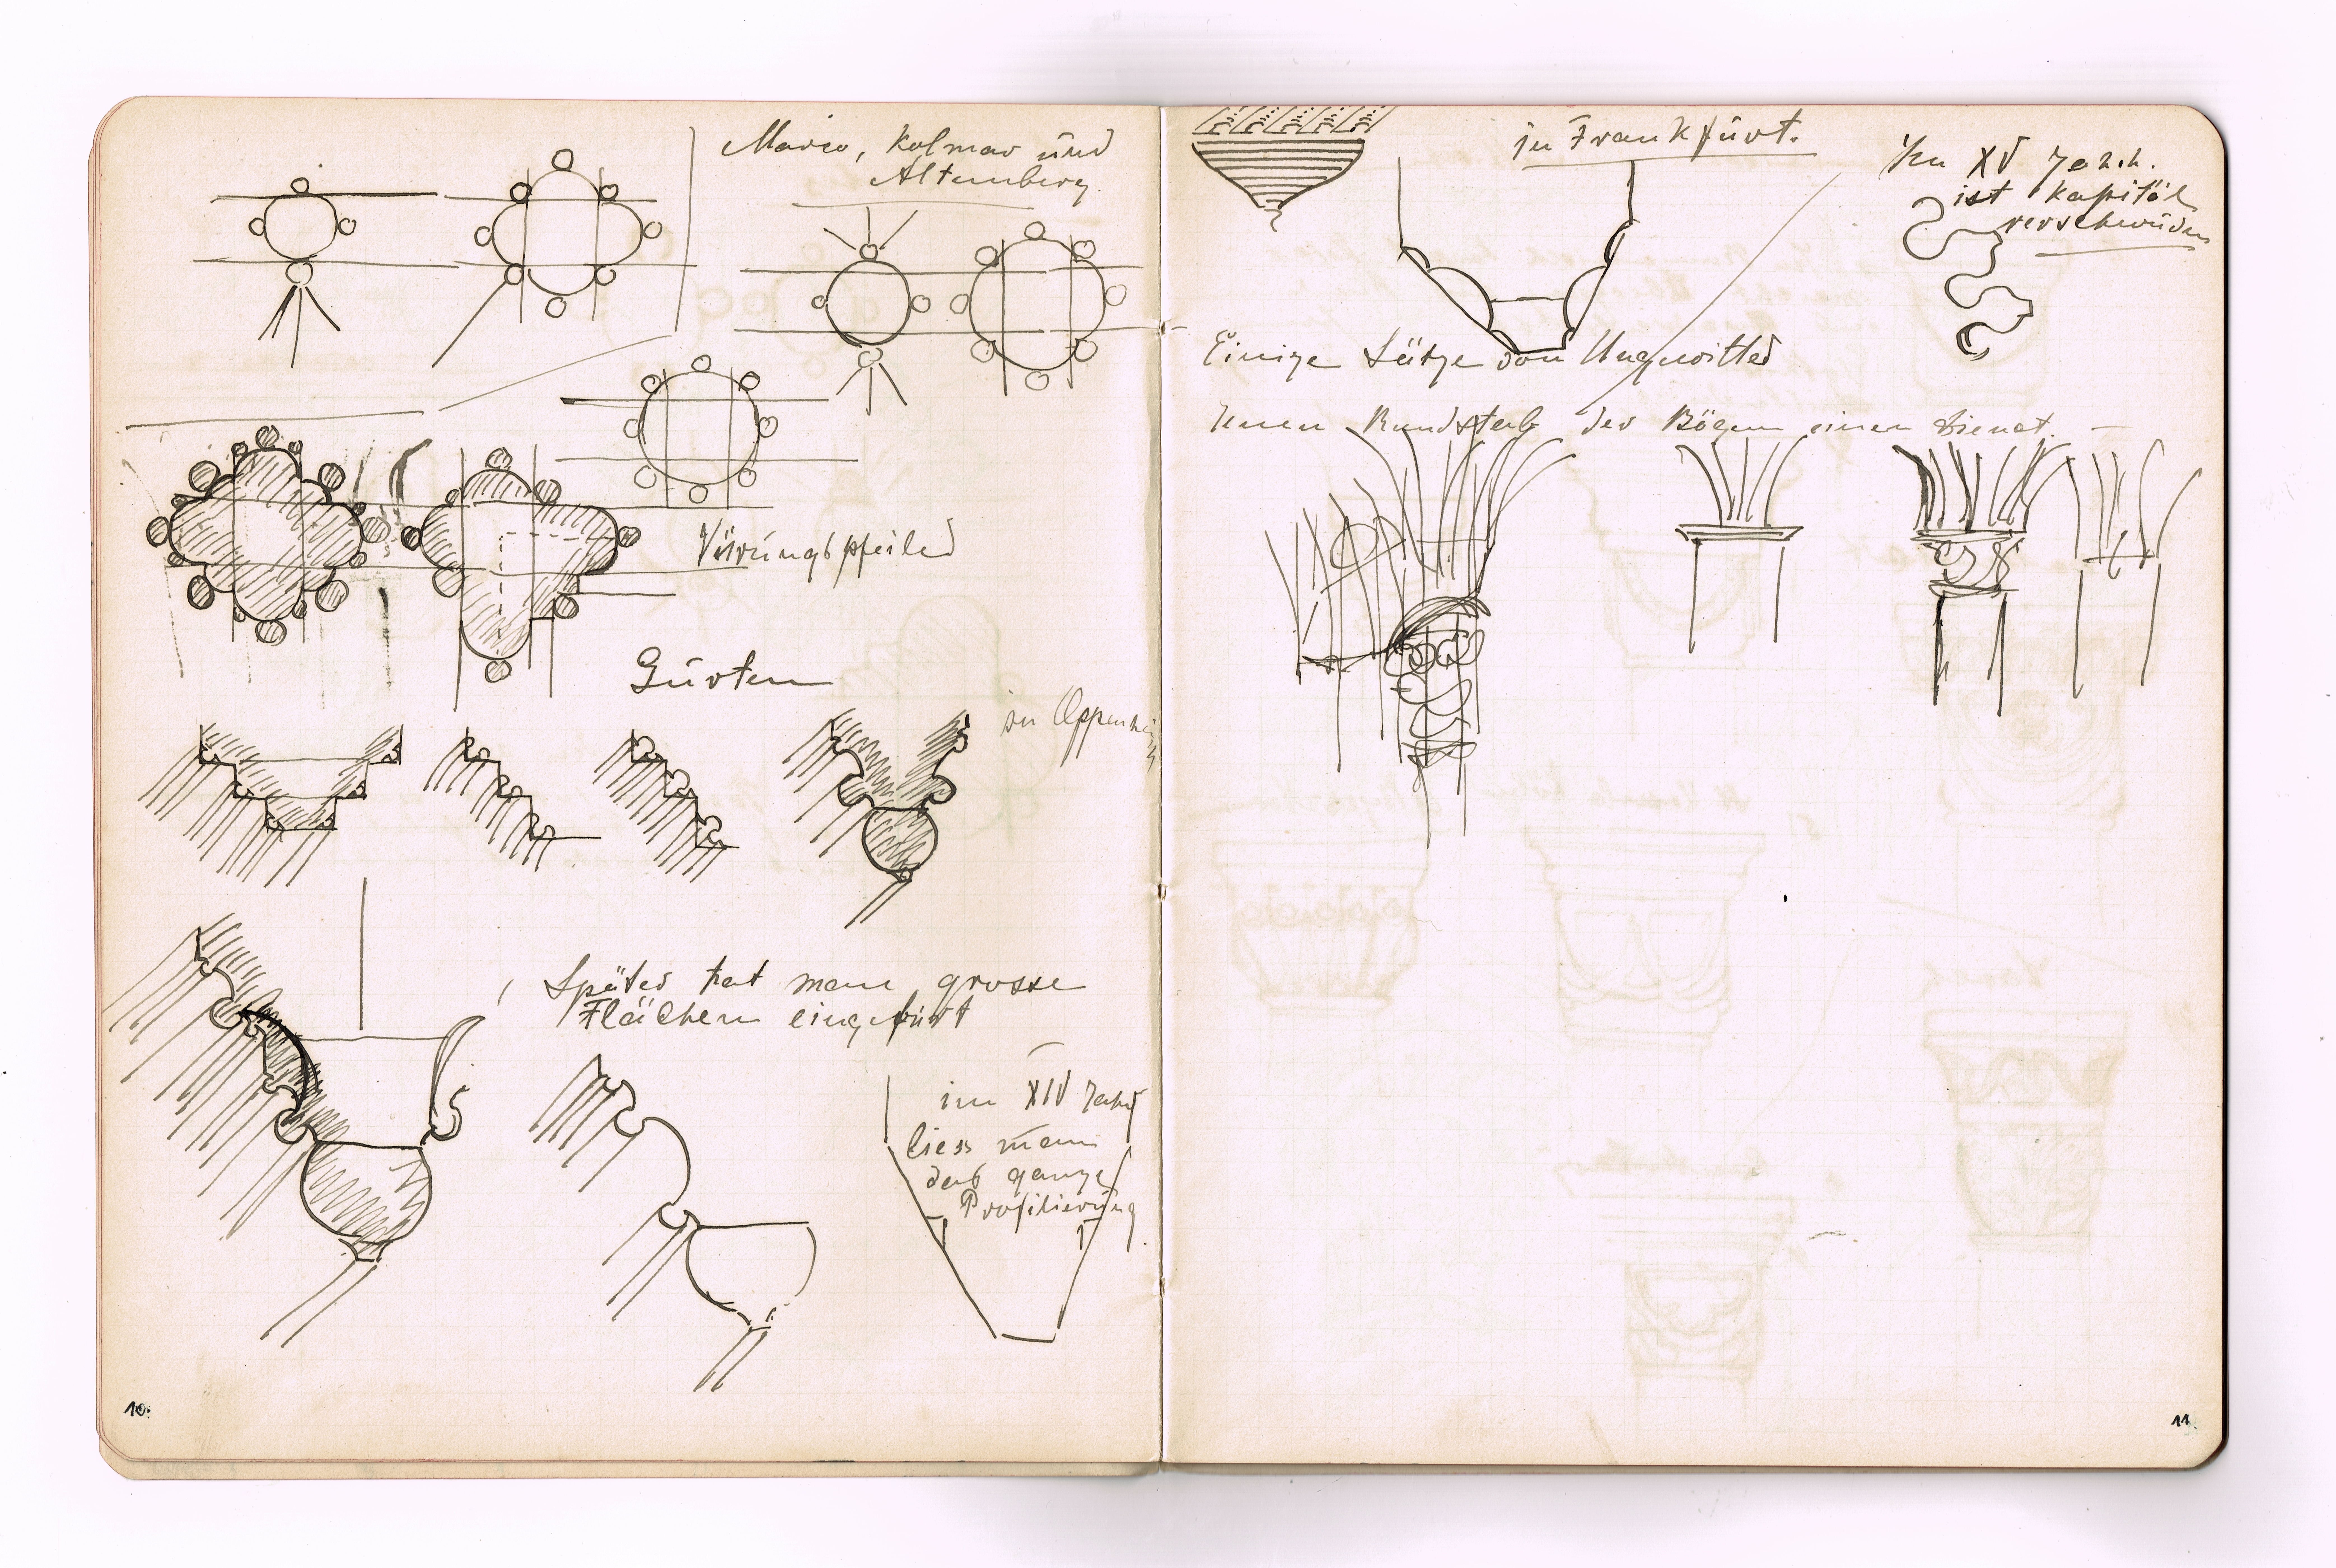 Mario, Kolmar und
Altemberg.
Vürungspfeiler
Gurten
in Oppenheim
Später hat man grosse
Flächen eingefürt
im XIV Jahr
liess man
das ganze
Profilierung
10.
in Frankfurt.
Im XV Jahrh.
ist Kapitäl
verschwüden
Einige Sätze von Ungewitter
Jenen Rundstab der Bögen einen Dienst. —
11.